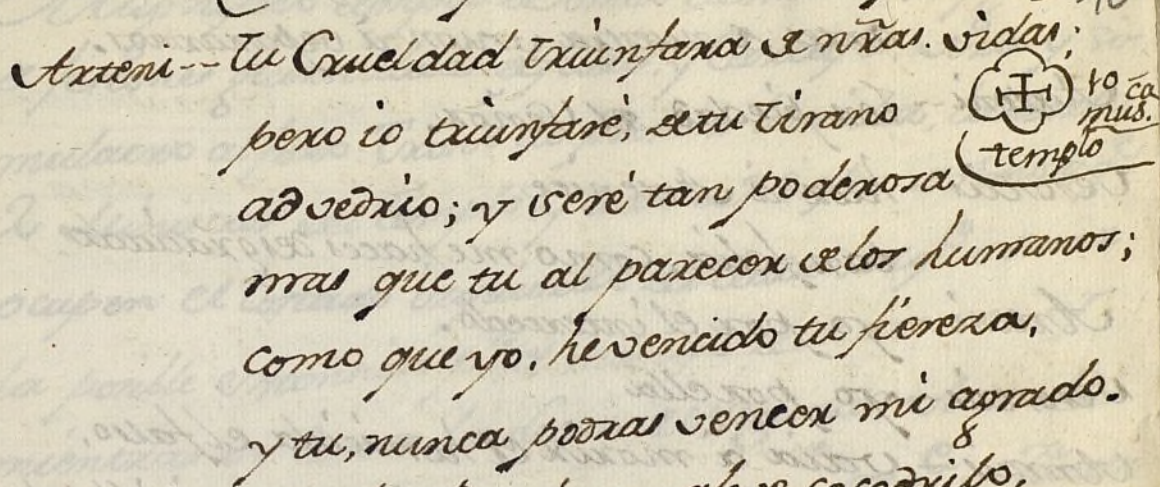 Arteni-- Tu Crueldad triunfara de nr̃as. vidas;
pero io triunfaré, de tu tirano
advedrio; y seré tan poderosa
mas que tu al parecer de los humanos;
como que yo. he vencido tu fiereza,
y tu, nunca podras vencer mi agrado.
to cã
mus.
templo
cocodrilo,